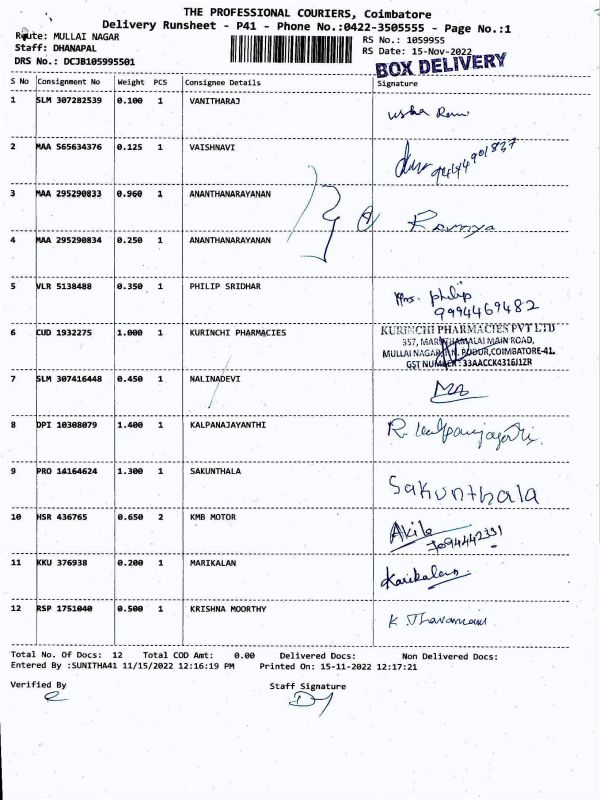 THE PROFESSIONAL COURIERS, Coimbatore
Delivery Runsheet - P41 - Phone No.:0422-3505555 - Page No.:1
Route: MULLAI NAGAR
RS No.: 1059955
Staff: DHANAPAL
RS Date: 15-Nov-2022
DRS No.: DCJB105995501
BOX DELIVERY
S No Consignment No Weight PCS Consignee Details Signature
1 SLM 307282539 0.100 1 VANITHARAJ
usha Rani
2 MAA 565634376 0.125 1 VAISHNAVI
3 MAA 295290833 0.960 1 ANANTHANARAYANAN
Ramya
4 MAA 295290834 0.250 1 ANANTHANARAYANAN
5 VLR 5138488 0.350 1 PHILIP SRIDHAR
Mrs. philip
9994469482
6 CUD 1932275 1.000 1 KURINCHI PHARMACIES
KURINCHI PHARMACIES PVT LTD
357, MARUTHAMALAI MAIN ROAD,
MULLAI NAGAR, P.N. PUDUR, COIMBATORE-41.
GST NUMBER : 33AACCK4316J1ZR
7 SLM 307416448 0.450 1 NALINADEVI
8 DPI 10308079 1.400 1 KALPANAJAYANTHI
R. Kalpanajayanthi.
9 PRO 14164624 1.300 1 SAKUNTHALA
Sakunthala
10 HSR 436765 0.650 2 KMB MOTOR
Akila
11 KKU 376938 0.200 1 MARIKALAN
Karikalan.
12 RSP 1751040 0.500 1 KRISHNA MOORTHY
Total No. Of Docs: 12 Total COD Amt: 0.00 Delivered Docs: Non Delivered Docs:
Entered By :SUNITHA41 11/15/2022 12:16:19 PM Printed On: 15-11-2022 12:17:21
Verified By Staff Signature